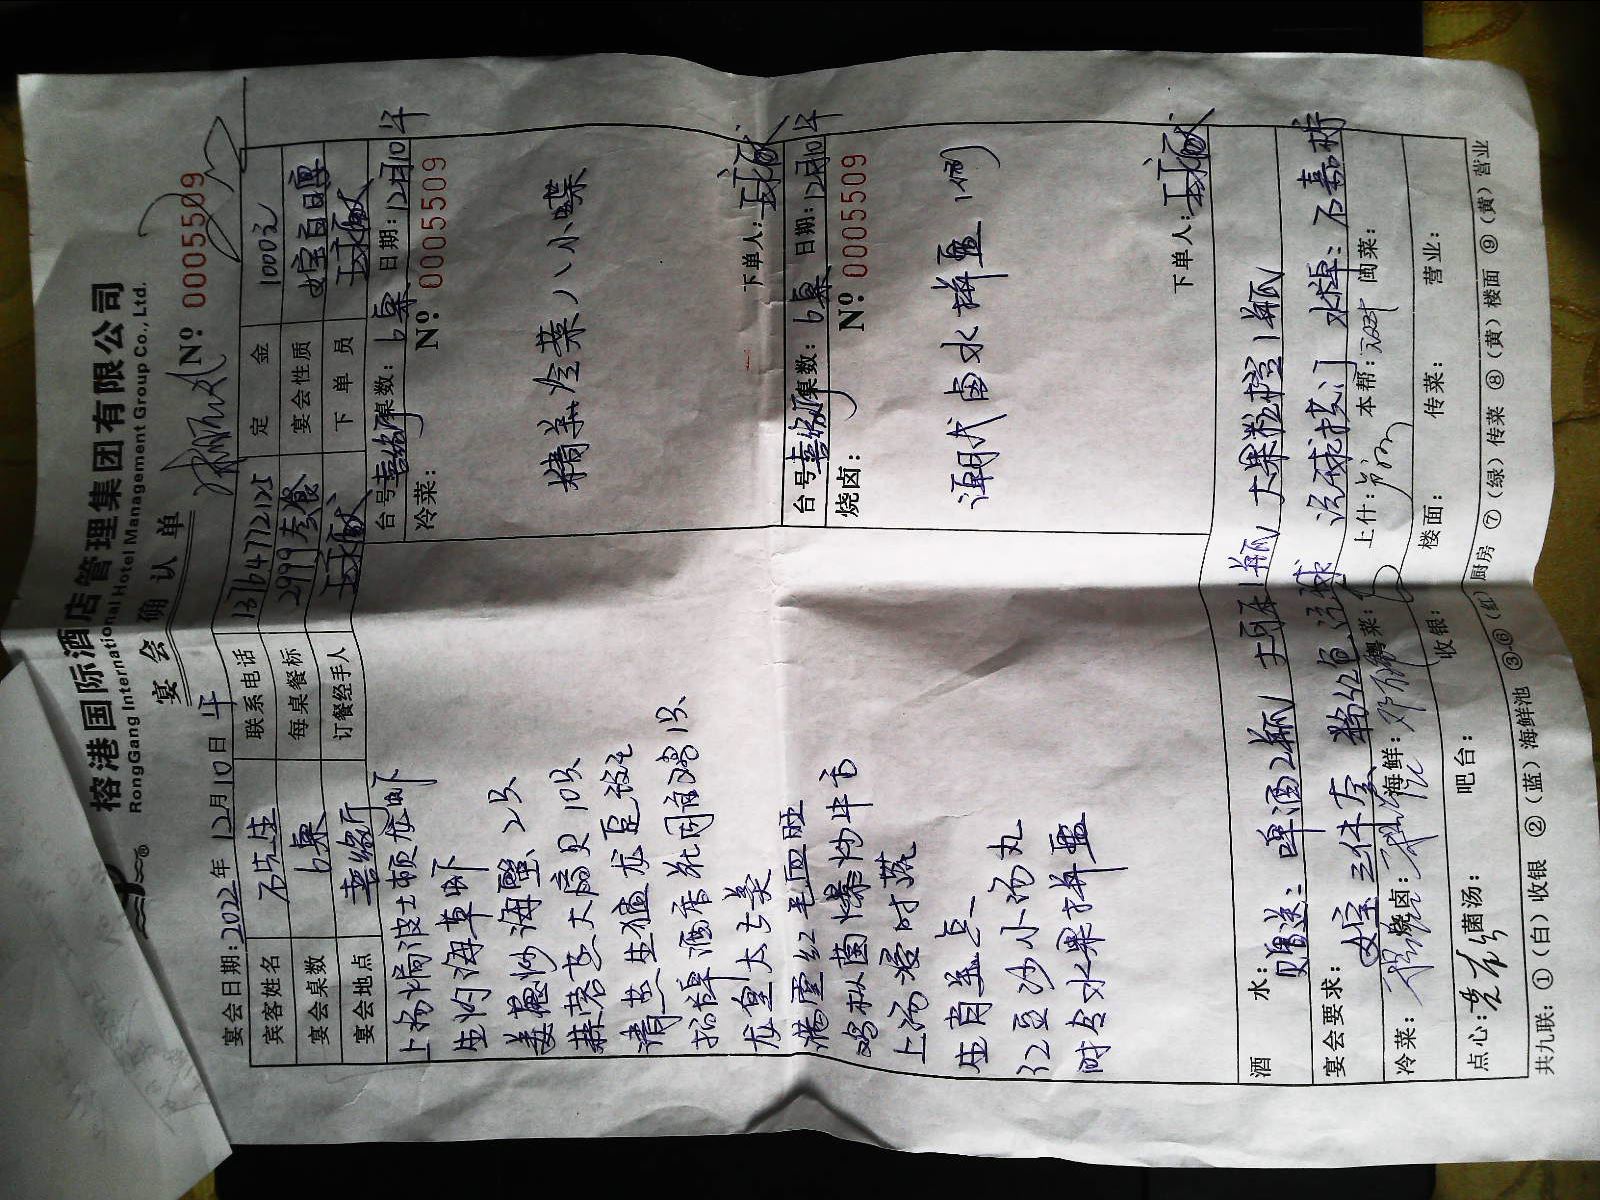 榕港国际酒店管理集团有限公司
RongGang International Hotel Management Group Co., Ltd.
宴会确认单
№ 0005509
宴会日期:2022年12月10日 午
宾客姓名 联系电话 13164772125 定金 1000元
宴会桌数 6桌 每桌餐标 2999套餐 宴会性质 女宝百日宴
宴会地点 喜缘厅 订餐经手人 下单员
上汤焗波士顿龙虾
生灼海草虾
姜葱炒海蟹 2只
蒜蓉蒸大扇贝 10只
清蒸生猛龙趸
招牌酒香 1只
龙皇太古羹
满堂红毛血旺
鸡枞菌爆炒牛
上汤浸时蔬
生肖美点
红豆沙小汤丸
时令水果拼盘
台号: 喜缘厅 桌数: 6桌 日期: 12月10 午
冷菜: № 0005509
精美冷菜八小碟
下单人:
台号: 喜缘厅 桌数: 6桌 日期: 12月10 午
烧卤: № 0005509
潮式卤水拼盘 1例
下单人:
酒水:
赠送: 啤酒2瓶 1瓶 大果粒橙1瓶
宴会要求:
女宝三件套 粉色 汽球拱门 水牌:
冷菜: 烧卤: 海鲜: 粤菜: 上什: 本帮: 闽菜:
点心: 菌汤: 吧台: 收银: 楼面: 传菜: 营业:
共九联: ①(白)收银 ②(蓝)海鲜池 ③-⑥(红)厨房 ⑦(绿)传菜 ⑧(黄)楼面 ⑨(黄)营业